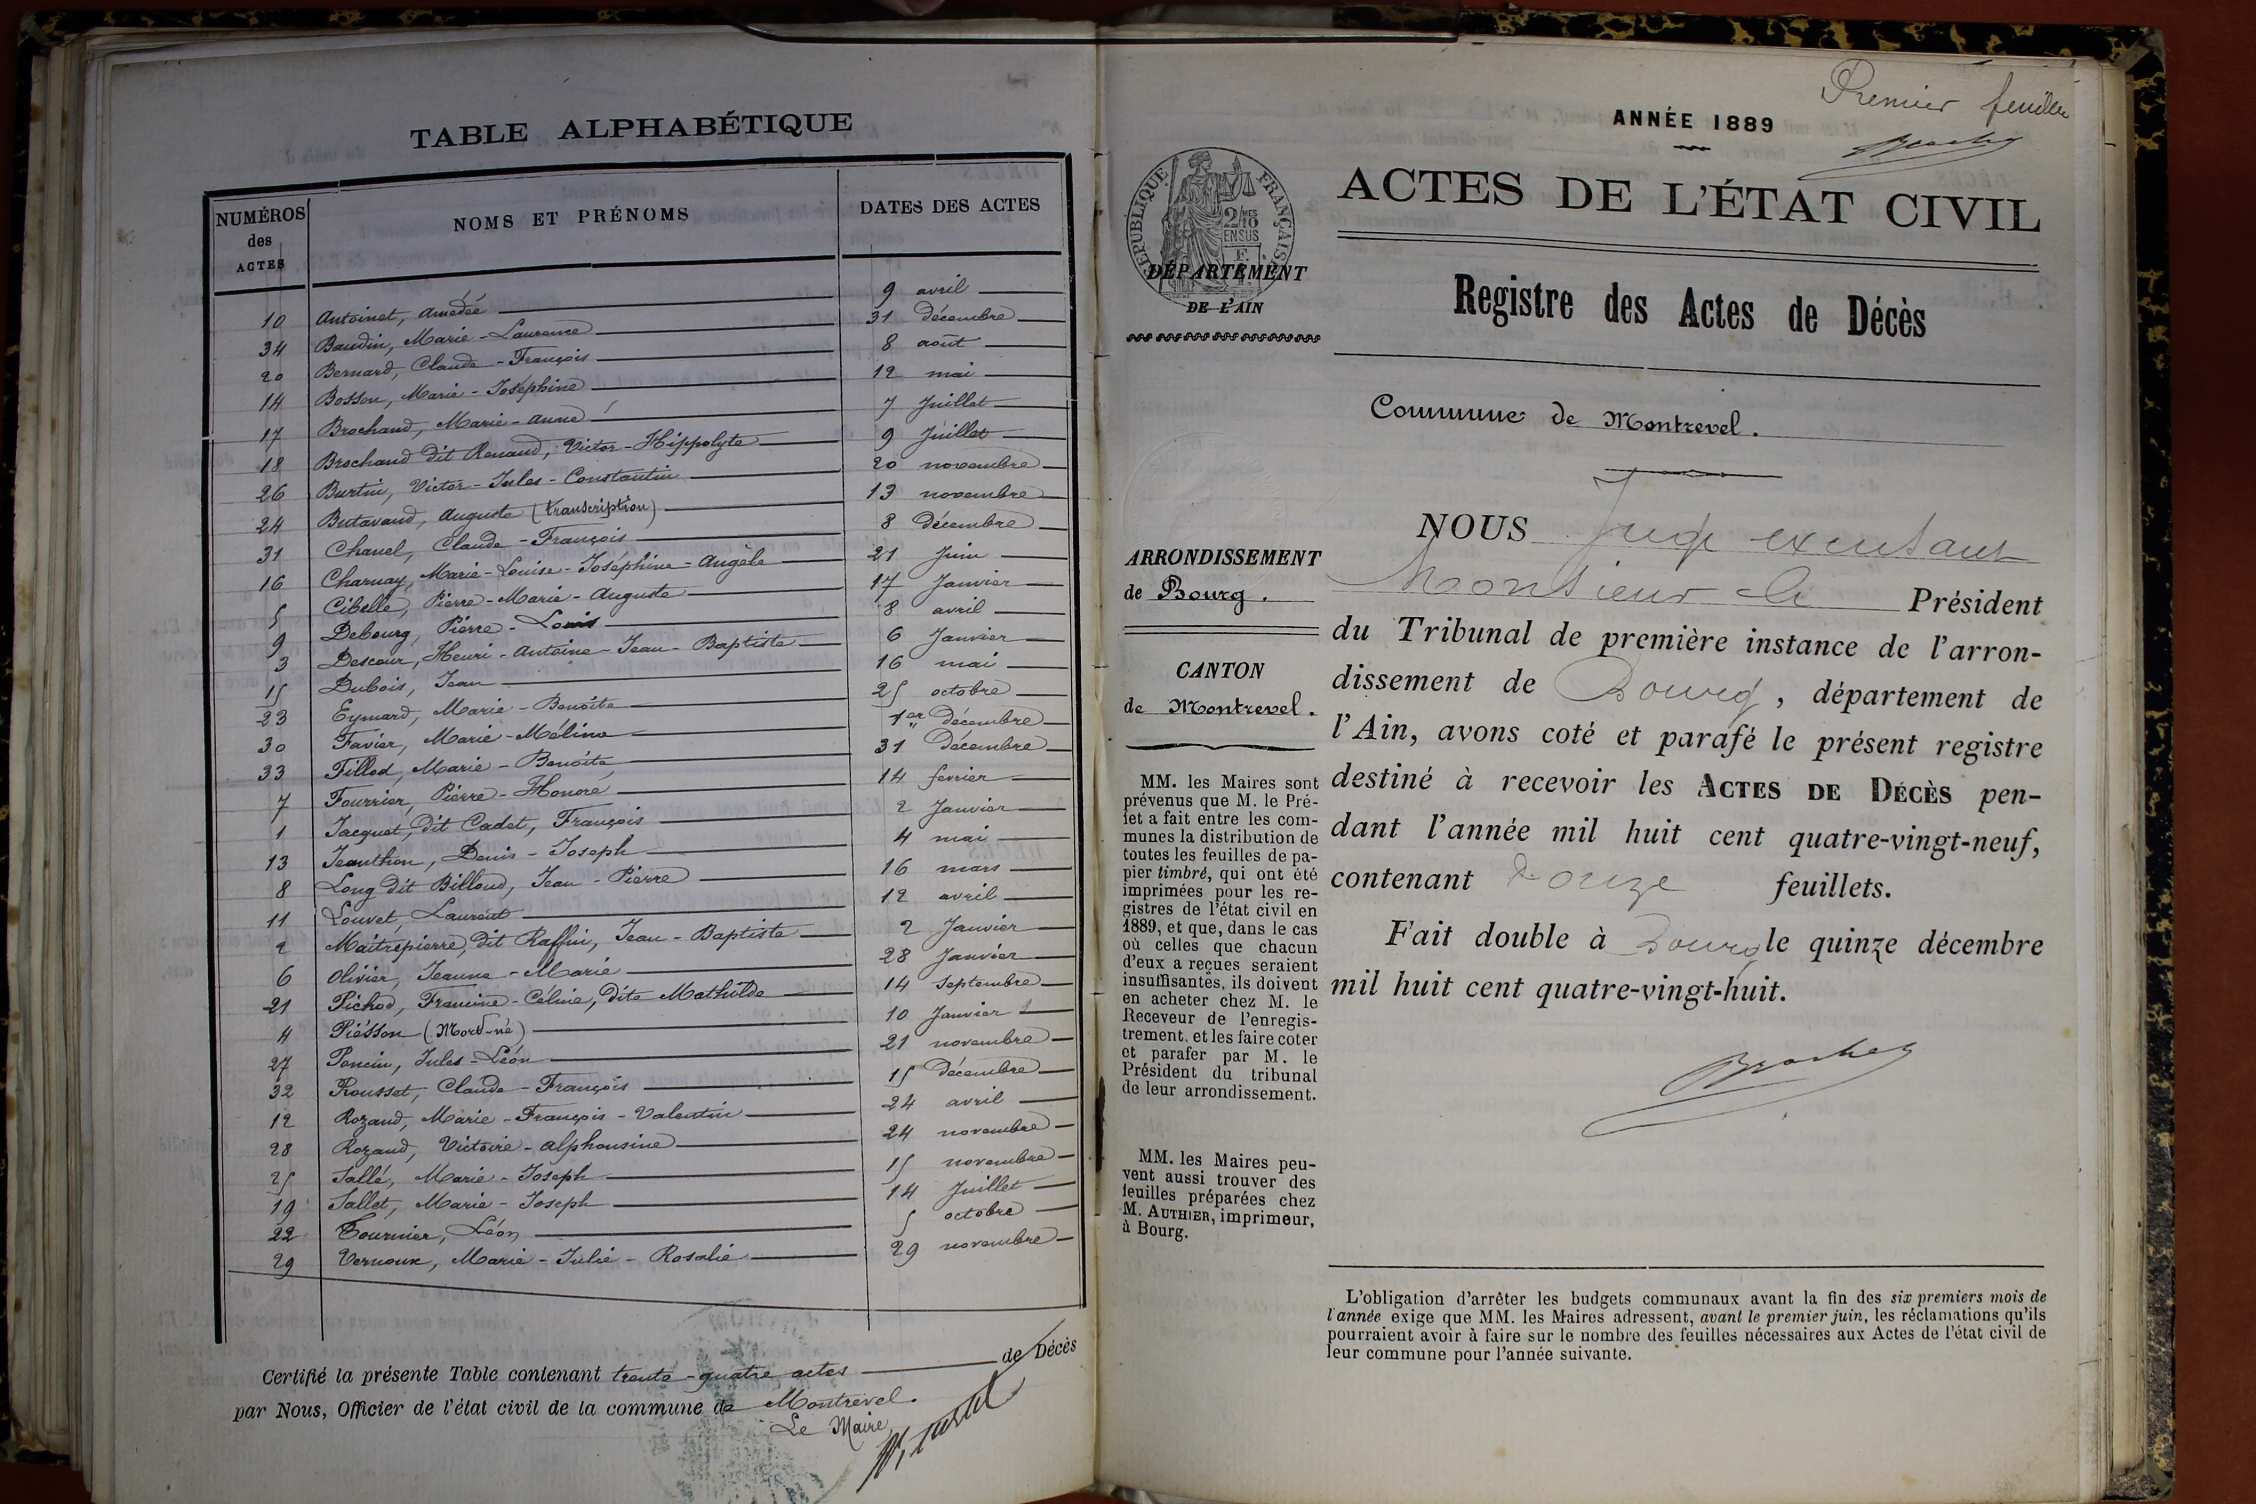 TABLE ALPHABÉTIQUE
NUMÉROS des ACTES NOMS ET PRÉNOMS DATES DES ACTES
10 Antoinet, Amédée 9 avril
34 Baudin, Marie-Laurence 31 Décembre
20 Bernard, Claude-François 8 août
14 Bosson, Marie-Joséphine 12 mai
17 Brochand, Marie-Anne 7 Juillet
18 Brochand dit Renaud, Victor-Hippolyte 9 Juillet
26 Burtin, Victor-Jules-Constantin 20 novembre
24 Butavand, Auguste (transcription) 13 novembre
31 Chanel, Claude-François 8 Décembre
16 Charnay, Marie-Louise-Joséphine-Angèle 21 Juin
5 Cibelle, Pierre-Marie-Auguste 17 Janvier
9 Debourg, Pierre-Louis 8 avril
3 Descour, Henri-Antoine-Jean-Baptiste 6 Janvier
15 Dubois, Jean 16 mai
23 Eymard, Marie-Benoite 25 octobre
30 Favier, Marie-Mélina 1er Décembre
33 Fillod, Marie-Benoite 31 Décembre
7 Fourrier, Pierre-Honoré 14 fevrier
1 Jacquet, dit Cadet, François 2 Janvier
13 Jeanthon, Denis-Joseph 4 mai
8 Long dit Billoud, Jean-Pierre 16 mars
11 Louvet, Laurent 12 avril
2 Maitrepierre, dit Raffin, Jean-Baptiste 2 Janvier
6 Olivier, Jeanne-Marie 28 Janvier
21 Pichod, Francine-Céline, dite Mathilde 14 Septembre
4 Piésson (Mort-né) 10 Janvier
27 Poncin, Jules-Léon 21 novembre
32 Rousset, Claude-François 15 Décembre
12 Rozand, Marie-François-Valentin 24 avril
28 Rozand, Victoire-Alphonsine 24 novembre
25 Sallé, Marie-Joseph 15 novembre
19 Sallet, Marie-Joseph 14 Juillet
22 Tournier, Léon 5 octobre
29 Vernoux, Marie-Julie-Rosalie 29 novembre
Certifié la présente Table contenant trente-quatre actes de Décès
par Nous, Officier de l'état civil de la commune de Montrevel.
Le Maire
Premier feuillet
ANNÉE 1889
RÉPUBLIQUE FRANÇAISE
2/10 EN SUS
DÉPARTEMENT
DE L'AIN
ACTES DE L'ÉTAT CIVIL
Registre des Actes de Décès
Commune de Montrevel.
ARRONDISSEMENT
de Bourg.
CANTON
de Montrevel.
MM. les Maires sont
prévenus que M. le Pré-
fet a fait entre les com-
munes la distribution de
toutes les feuilles de pa-
pier timbré, qui ont été
imprimées pour les re-
gistres de l'état civil en
1889, et que, dans le cas
où celles que chacun
d'eux a reçues seraient
insuffisantes, ils doivent
en acheter chez M. le
Receveur de l'enregis-
trement, et les faire coter
et parafer par M. le
Président du tribunal
de leur arrondissement.
MM. les Maires peu-
vent aussi trouver des
feuilles préparées chez
M. AUTHIER, imprimeur,
à Bourg.
NOUS Juge
Monsieur le Président
du Tribunal de première instance de l'arron-
dissement de Bourg, département de
l'Ain, avons coté et parafé le présent registre
destiné à recevoir les ACTES DE DÉCÈS pen-
dant l'année mil huit cent quatre-vingt-neuf,
contenant douze feuillets.
Fait double à Bourg le quinze décembre
mil huit cent quatre-vingt-huit.
L'obligation d'arrêter les budgets communaux avant la fin des six premiers mois de
l'année exige que MM. les Maires adressent, avant le premier juin, les réclamations qu'ils
pourraient avoir à faire sur le nombre des feuilles nécessaires aux Actes de l'état civil de
leur commune pour l'année suivante.